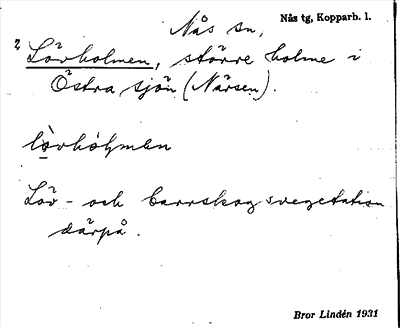 Nås sn,
Nås tg, Kopparb. l.
2 Lövholmen, större holme i
Östra sjön (Närsen).
Löv- och barrskogsvegetation
därpå.
Bror Lindén 1931